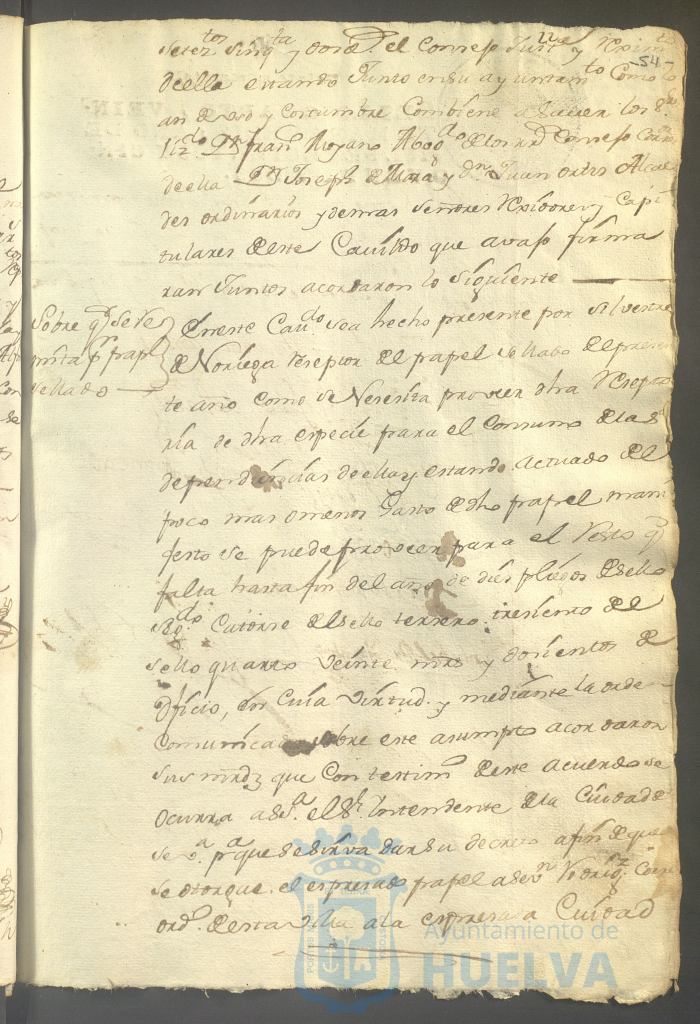 -54-
Setez.tos Sinq.ta y dos. el Conzejo Just.a y Reximto
de ella estando Junto en su ayuntam.to Como lo
an de uso y costumbre Combiene a saver los S.res
Liz.do Dn. fran.co Moyano Abog.do de los R.s Consejos Corr.
de ella Dn. Joseph de Mora y dn. Juan ortis Alcal
des ordinarios y demas Señores Rexidores y Capi
tulares de este Cavildo que avajo firma
ran Juntos acordaron lo siguiente
Sobre q.e se Re
mita p.r papl
sellado
En este Cav.do sea hecho presente por Silvestre
de Noriega Rezeptor del papel sellado del presen
te año como se Nezesita prover dha Rezepto
ria de dha especie para el Consumo de las
dependencias de ella y estando actuado del
poco mas o menos Gasto de dho papel mani
festo se puede proveer para el Resto q.e
falta hasta fin del año de dies pliegos de sello
seg.do Catorse del sello terzero tresientos del
sello quarto veinte mrs y dosientos de
Oficio, en Cuia virtud y mediante la orden
Comunicada sobre este asumpto acordaron
sus mrdz que Con testim.o de este acuerdo se
ocurra a S.Sa. el Sr. Intendente de la Ciudad de
Se.va p.a que se sirva dar su decreto a fin de que
se otorgue el espresado papel a Rodrig.z
ord.o de esta villa a la espresada Ciudad
Ayuntamiento de
HUELVA